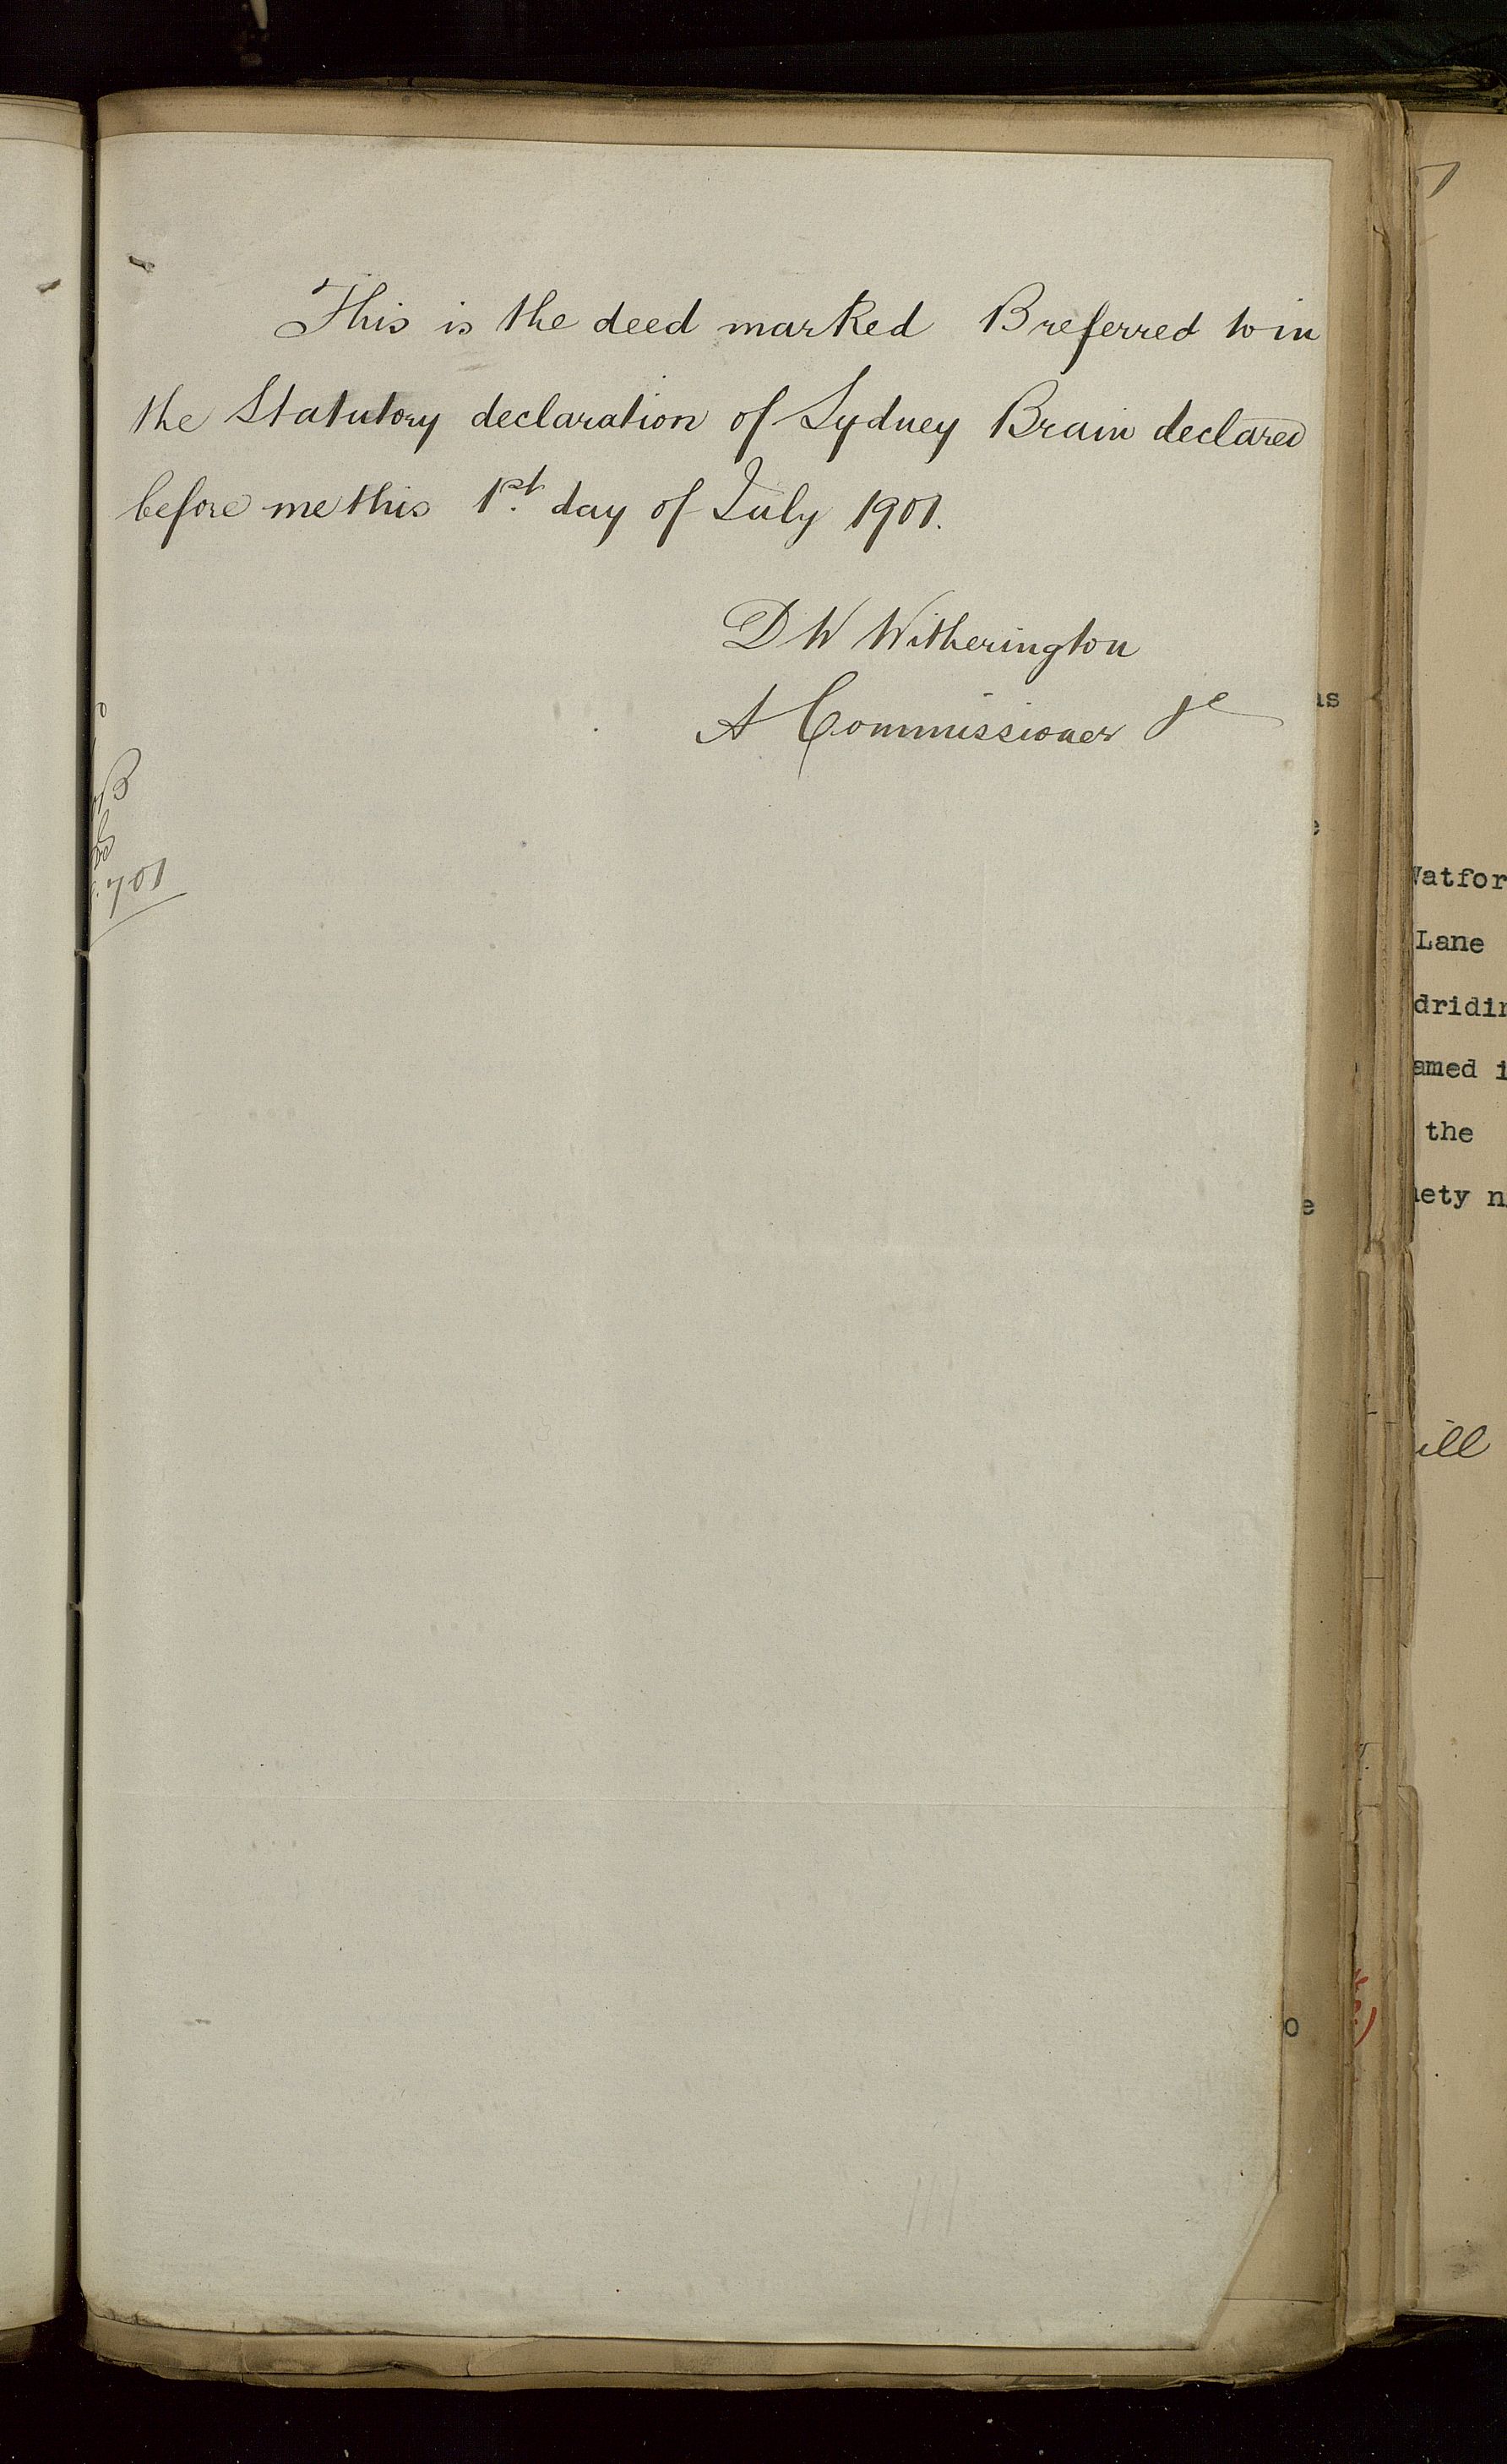 This is the deed marked B referred to in
the Statutory declaration of Sydney Brain declared
before me this 1st. day of July 1901.
D W Witherington
A Commissioner &c
B
701
as
e
e
o
Watfor
Lane
dridin
amed i
the
nety n
ill